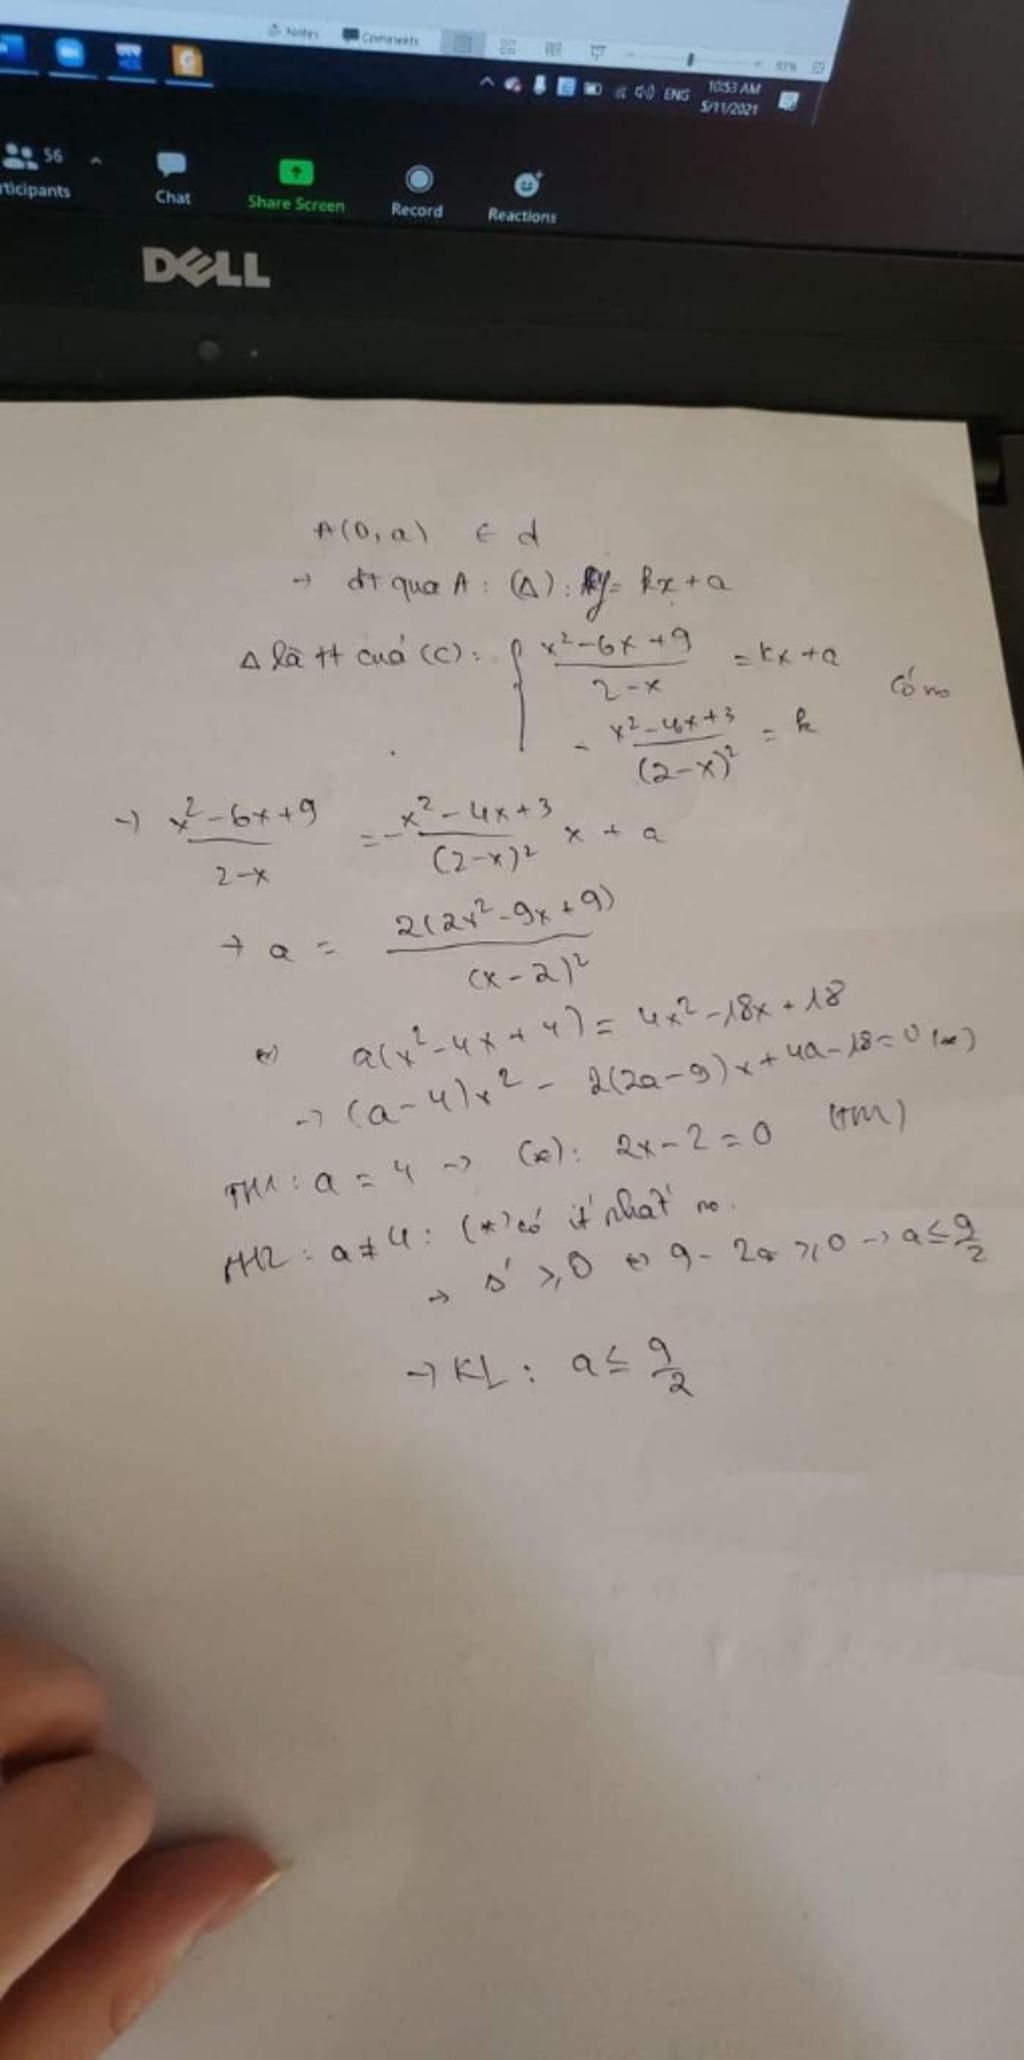 Notes Comments 93%
ENG 10:53 AM
5/11/2021
56
rticipants Chat Share Screen Record Reactions
DELL
A(0, a) ∈ d
→ đt qua A : (Δ) : y = kx + a
Δ là tt của (C) : { (x² - 6x + 9)/(2 - x) = kx + a
- (x² - 4x + 3)/(2 - x)² = k có no
→ (x² - 6x + 9)/(2 - x) = - (x² - 4x + 3)/(2 - x)² x + a
→ a = 2(2x² - 9x + 9)/(x - 2)²
⇔ a(x² - 4x + 4) = 4x² - 18x + 18
→ (a - 4)x² - 2(2a - 9)x + 4a - 18 = 0 (*)
TH1 : a = 4 → (*) : 2x - 2 = 0 (TM)
TH2 : a ≠ 4 : (*) có ít nhất no.
→ Δ' ≥ 0 ⇔ 9 - 2a ≥ 0 → a ≤ 9/2
→ KL : a ≤ 9/2